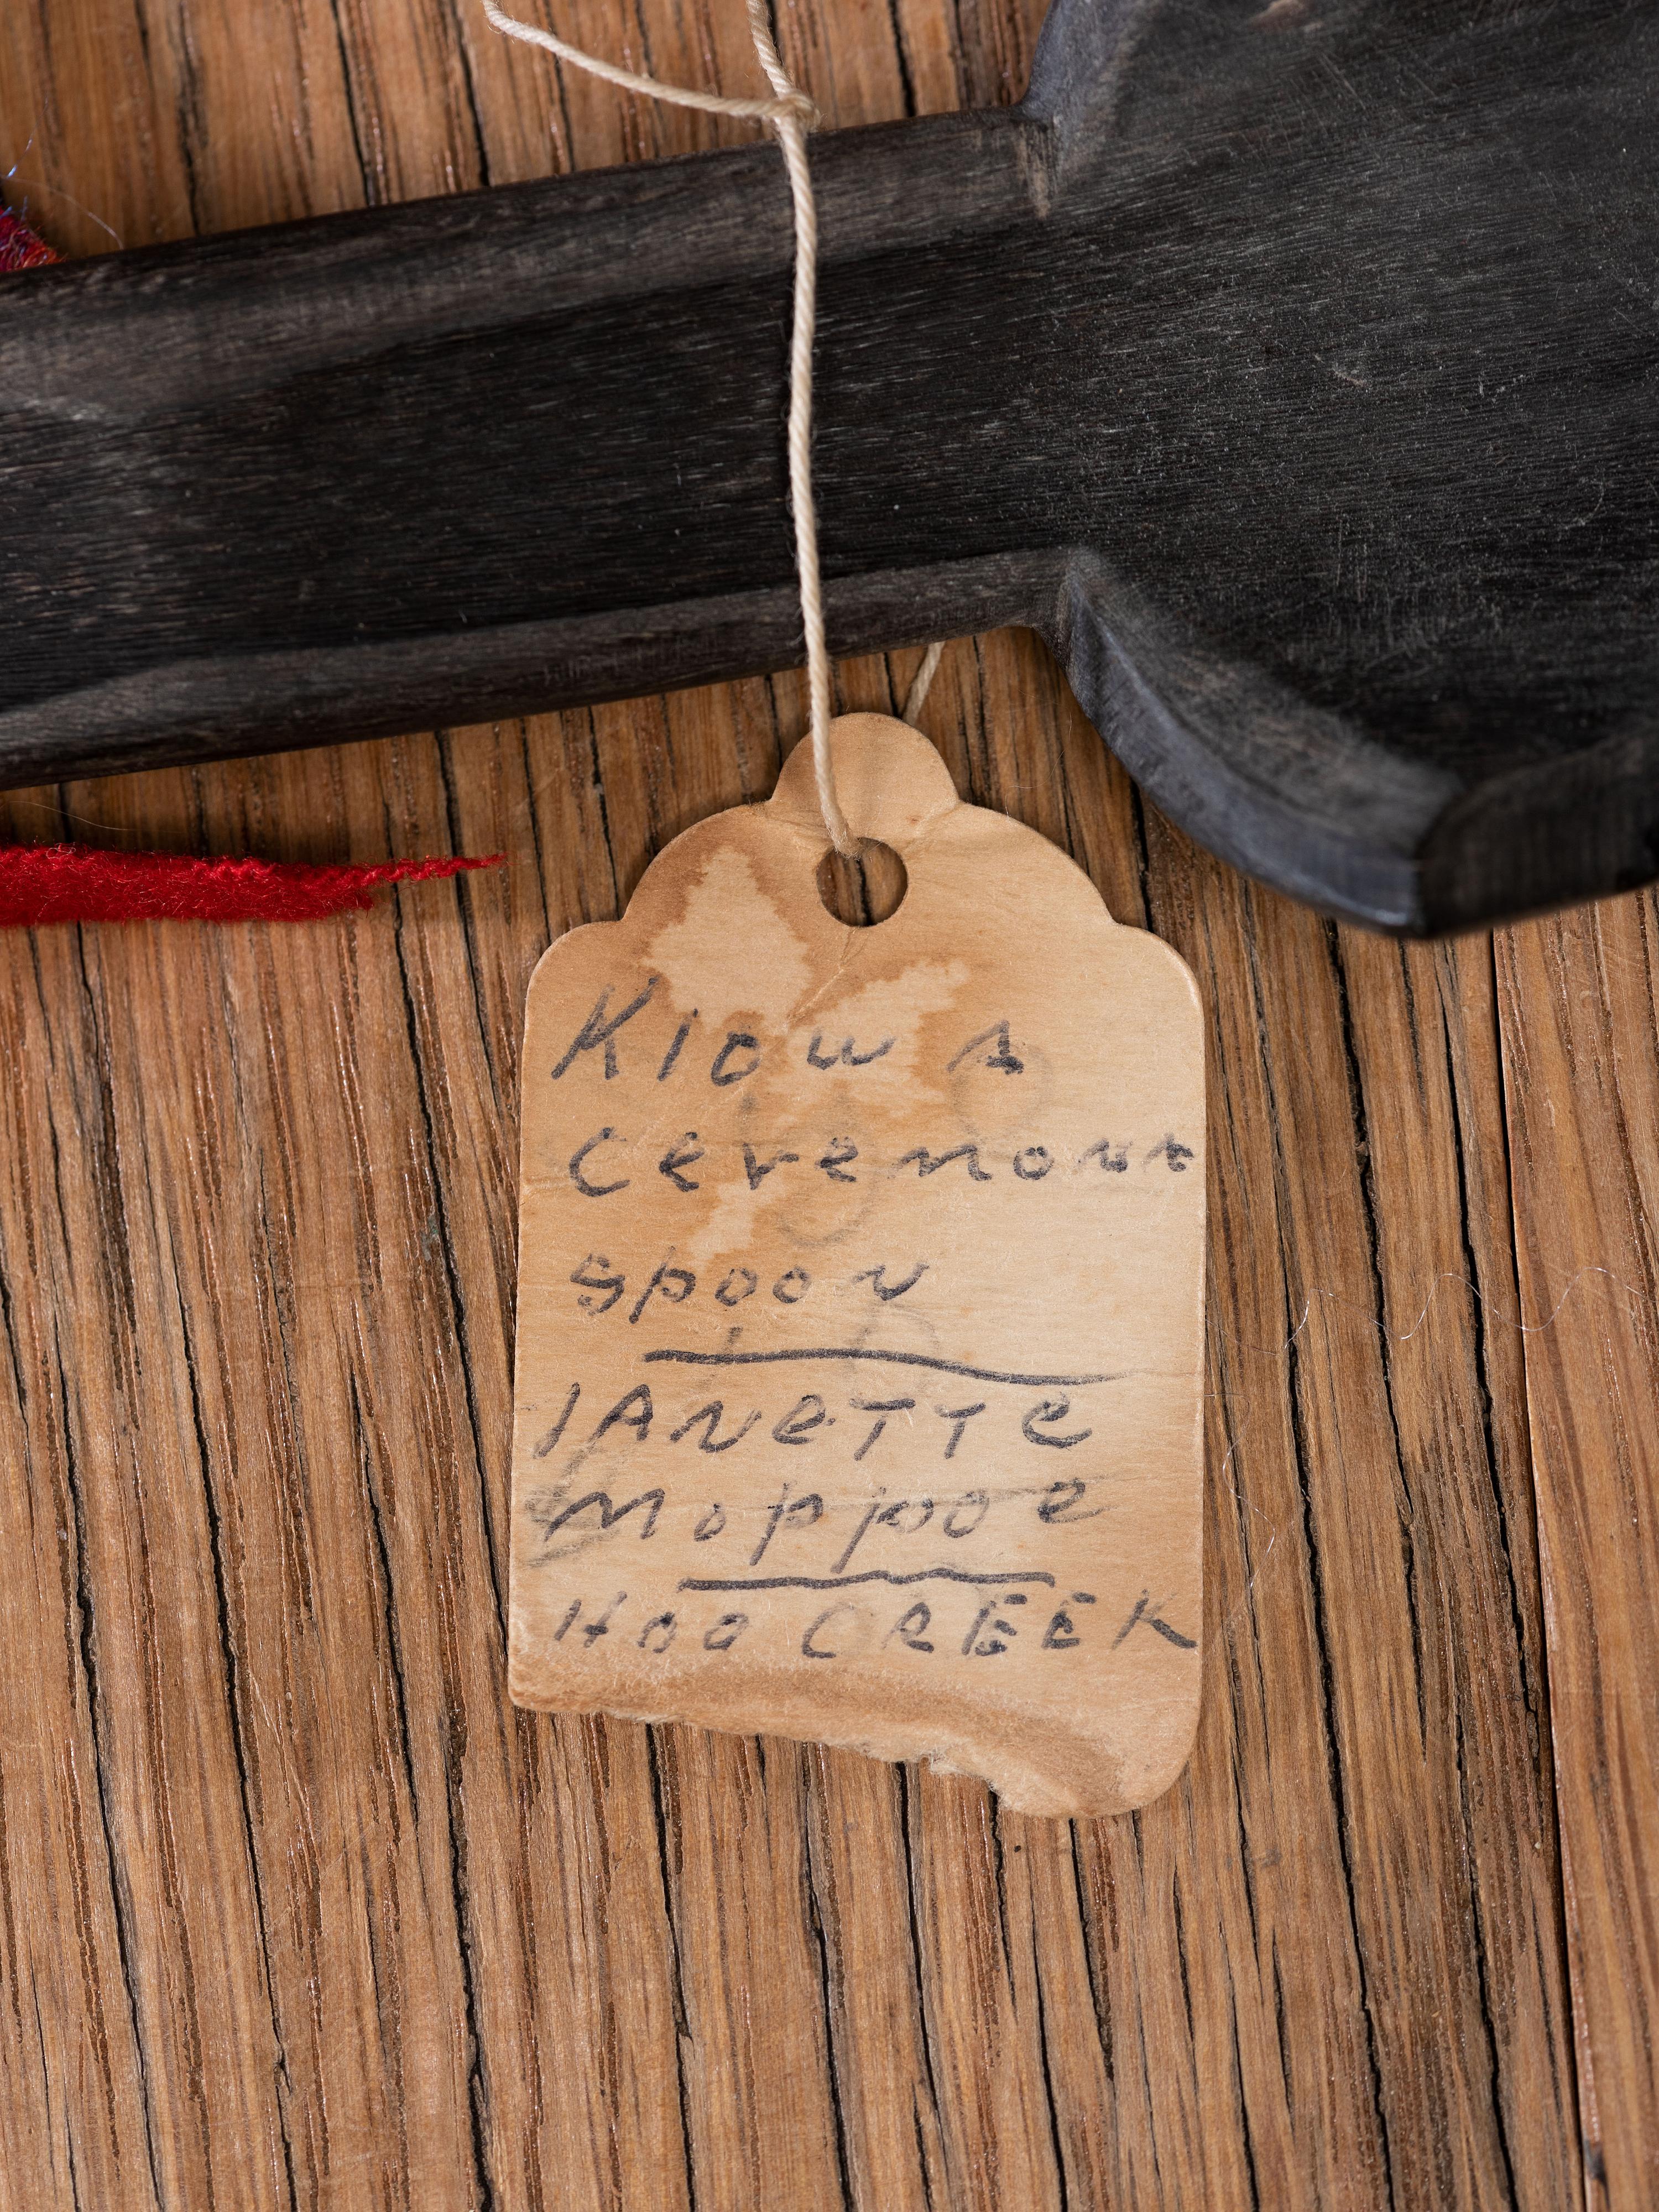 Kiowa
Ceremona
spoon
JANeTTe
Moppoe
Hoo CREEK